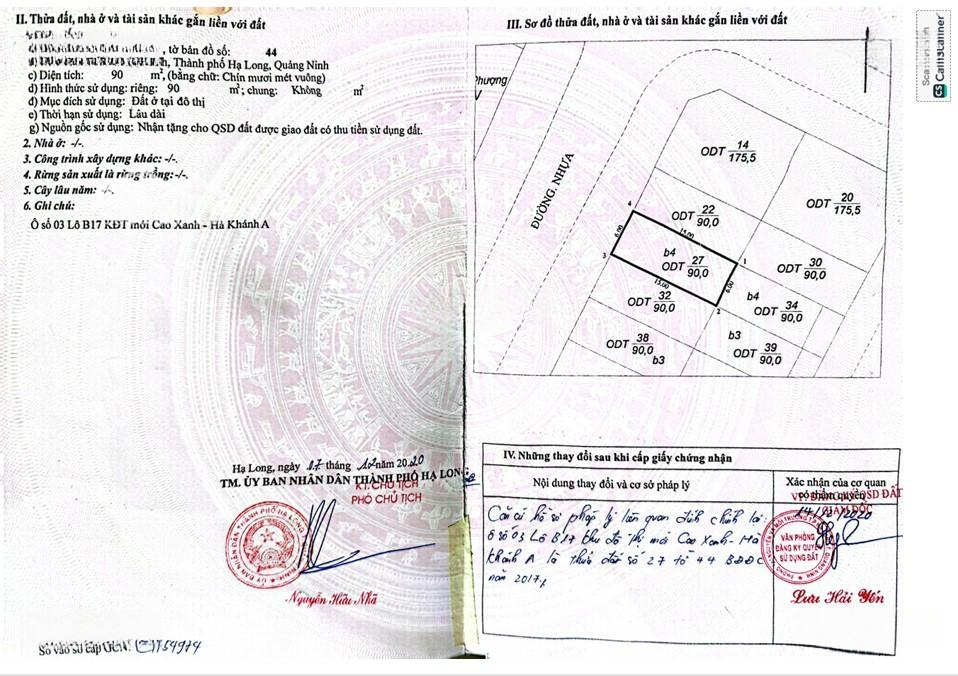 II. Thửa đất, nhà ở và tài sản khác gắn liền với đất
, tờ bản đồ số: 44
Thành phố Hạ Long, Quảng Ninh
c) Diện tích: 90 m², (bằng chữ: Chín mươi mét vuông)
d) Hình thức sử dụng: riêng: 90 m²; chung: Không m²
đ) Mục đích sử dụng: Đất ở tại đô thị
e) Thời hạn sử dụng: Lâu dài
g) Nguồn gốc sử dụng: Nhận tặng cho QSD đất được giao đất có thu tiền sử dụng đất.
2. Nhà ở: -/-.
3. Công trình xây dựng khác: -/-.
4. Rừng sản xuất là rừng trồng: -/-.
5. Cây lâu năm: -/-.
6. Ghi chú:
Ô số 03 Lô B17 KĐT mới Cao Xanh - Hà Khánh A
Hạ Long, ngày 17 tháng 12 năm 2020
TM. ỦY BAN NHÂN DÂN THÀNH PHỐ HẠ LONG
KT. CHỦ TỊCH
PHÓ CHỦ TỊCH
Nguyễn Hữu Nhã
Số vào sổ cấp GCN:
III. Sơ đồ thửa đất, nhà ở và tài sản khác gắn liền với đất
Phượng
V
ĐƯỜNG. NHỰA
ODT 14
175,5
20
ODT 175,5
ODT 22
90,0
4
6.00
15.00
3
b4
ODT 27
90,0
1
15.00
6.00
2
ODT 30
90,0
ODT 32
90,0
b4
ODT 34
90,0
ODT 38
90,0
b3
b3
ODT 39
90,0
IV. Những thay đổi sau khi cấp giấy chứng nhận
Nội dung thay đổi và cơ sở pháp lý
Xác nhận của cơ quan
có thẩm quyền
VP ĐĂNG KÝ QSD ĐẤT
GIÁM ĐỐC
Căn cứ hồ sơ pháp lý liên quan đính chính lại:
Ô số 03 Lô B17 khu đô thị mới Cao Xanh - Hà
Khánh A là thửa đất số 27 tờ 44 BĐĐC
năm 2017
VĂN PHÒNG
ĐĂNG KÝ QUYỀN
SỬ DỤNG ĐẤT
Lưu Hải Yến
CS CamScanner